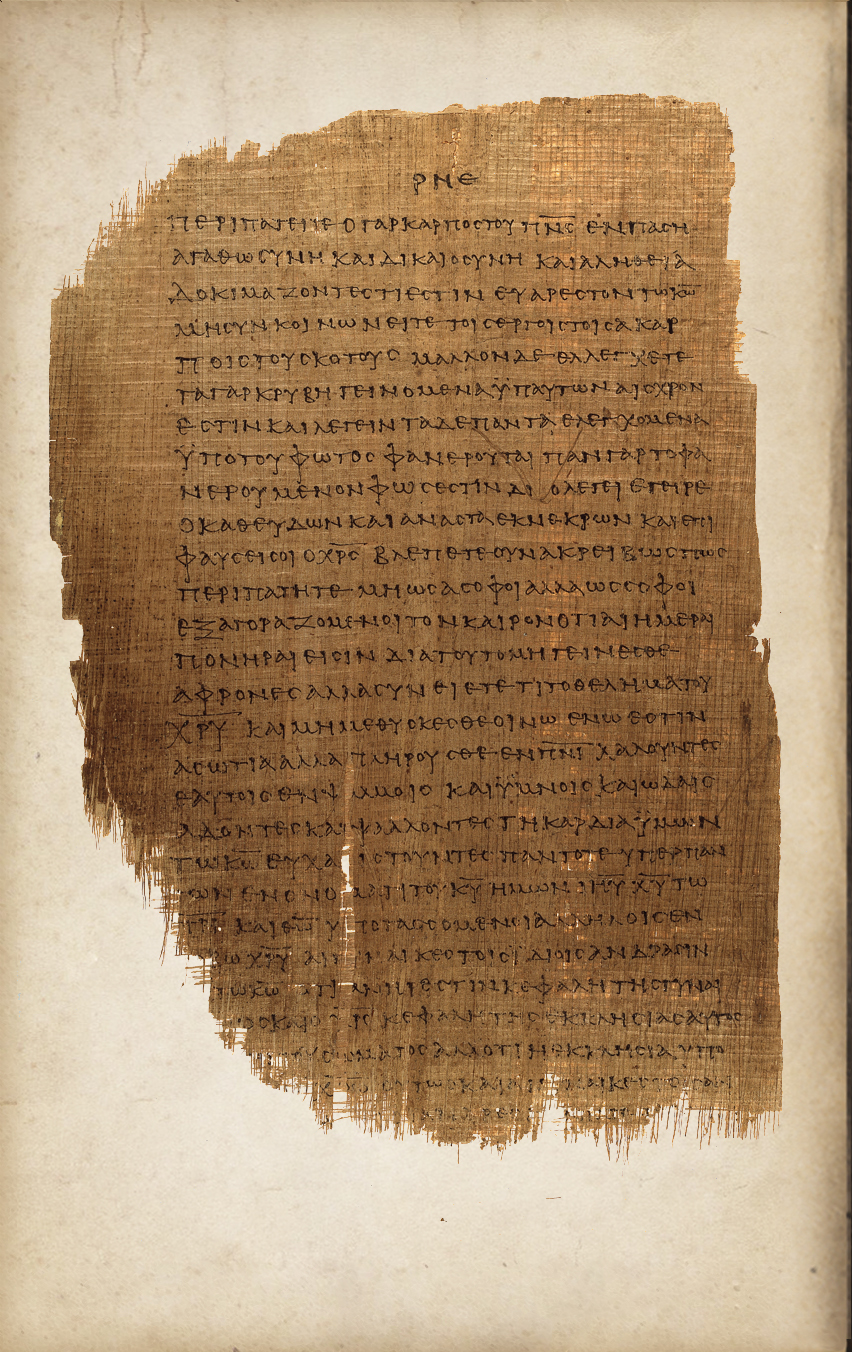 ΡΝΕ
ΠΕΡΙΠΑΤΕΙΤΕ Ο ΓΑΡ ΚΑΡΠΟΣ ΤΟΥ Π̅Ν̅Σ̅ ΕΝ ΠΑΣΗ
ΑΓΑΘΩΣΥΝΗ ΚΑΙ ΔΙΚΑΙΟΣΥΝΗ ΚΑΙ ΑΛΗΘΕΙΑ
ΔΟΚΙΜΑΖΟΝΤΕΣ ΤΙ ΕΣΤΙΝ ΕΥΑΡΕΣΤΟΝ ΤΩ Κ̅Ω̅
ΜΗ ΣΥΝΚΟΙΝΩΝΕΙΤΕ ΤΟΙΣ ΕΡΓΟΙΣ ΤΟΙΣ ΑΚΑΡ
ΠΟΙΣ ΤΟΥ ΣΚΟΤΟΥΣ ΜΑΛΛΟΝ ΔΕ ΕΛΕΓΧΕΤΕ
ΤΑ ΓΑΡ ΚΡΥΒΗ ΓΕΙΝΟΜΕΝΑ ΫΠ ΑΥΤΩΝ ΑΙΣΧΡΟΝ
ΕΣΤΙΝ ΚΑΙ ΛΕΓΕΙΝ ΤΑ ΔΕ ΠΑΝΤΑ ΕΛΕΓΧΟΜΕΝΑ
ΫΠΟ ΤΟΥ ΦΩΤΟΣ ΦΑΝΕΡΟΥΤΑΙ ΠΑΝ ΓΑΡ ΤΟ ΦΑ
ΝΕΡΟΥΜΕΝΟΝ ΦΩΣ ΕΣΤΙΝ ΔΙΟ ΛΕΓΕΙ ΕΓΕΙΡΕ
Ο ΚΑΘΕΥΔΩΝ ΚΑΙ ΑΝΑΣΤΑ ΕΚ ΝΕΚΡΩΝ ΚΑΙ ΕΠΙ
ΦΑΥΣΕΙ ΣΟΙ Ο Χ̅Ρ̅Σ̅ ΒΛΕΠΕΤΕ ΟΥΝ ΑΚΡΕΙΒΩΣ ΠΩΣ
ΠΕΡΙΠΑΤΗΤΕ ΜΗ ΩΣ ΑΣΟΦΟΙ ΑΛΛΑ ΩΣ ΣΟΦΟΙ
ΕΞΑΓΟΡΑΖΟΜΕΝΟΙ ΤΟΝ ΚΑΙΡΟΝ ΟΤΙ ΑΙ ΗΜΕΡΑΙ
ΠΟΝΗΡΑΙ ΕΙΣΙΝ ΔΙΑ ΤΟΥΤΟ ΜΗ ΓΕΙΝΕΣΘΕ
ΑΦΡΟΝΕΣ ΑΛΛΑ ΣΥΝΕΙΕΤΕ ΤΙ ΤΟ ΘΕΛΗΜΑ ΤΟΥ
Χ̅Ρ̅Υ̅ ΚΑΙ ΜΗ ΜΕΘΥΣΚΕΣΘΕ ΟΙΝΩ ΕΝ Ω ΕΣΤΙΝ
ΑΣΩΤΙΑ ΑΛΛΑ ΠΛΗΡΟΥΣΘΕ ΕΝ Π̅Ν̅Ι̅ ΛΑΛΟΥΝΤΕΣ
ΕΑΥΤΟΙΣ ΕΝ Ψ ΛΜΟΙΣ ΚΑΙ ΫΜΝΟΙΣ ΚΑΙ ΩΔΑΙΣ
ΑΔΟΝΤΕΣ ΚΑΙ ΨΑΛΛΟΝΤΕΣ ΤΗ ΚΑΡΔΙΑ ΫΜΩΝ
ΤΩ Κ̅Ω̅ ΕΥΧΑ ΙΣΤΟΥΝΤΕΣ ΠΑΝΤΟΤΕ ΥΠΕΡ ΠΑΝ
ΩΝ ΕΝ ΟΝΟ ΜΑΤΙ ΤΟΥ Κ̅Υ̅ ΗΜΩΝ Ι̅Η̅Υ̅ Χ̅Υ̅ ΤΩ
ΚΑΙ Υ ΠΟΤΑΣΣΟΜΕΝΟΙ ΑΛΛΗΛΟΙΣ ΕΝ
ΑΙ ΓΥΝΑΙΚΕΣ ΤΟΙΣ ΪΔΙΟΙΣ ΑΝΔΡΑΣΙΝ
ΤΩ Κ̅Ω̅ ΟΤΙ ΑΝΗΡ ΕΣΤΙΝ ΚΕΦΑΛΗ ΤΗΣ ΓΥΝΑΙ
ΚΟΣ ΚΑΙ ΚΕΦΑΛΗ ΤΗΣ ΕΚΚΛΗΣΙΑΣ ΑΥΤΟΣ
ΣΩΜΑΤΟΣ ΑΛΛΑ ΟΤΙ Η ΕΚΚΛΗΣΙΑ ΥΠΟ